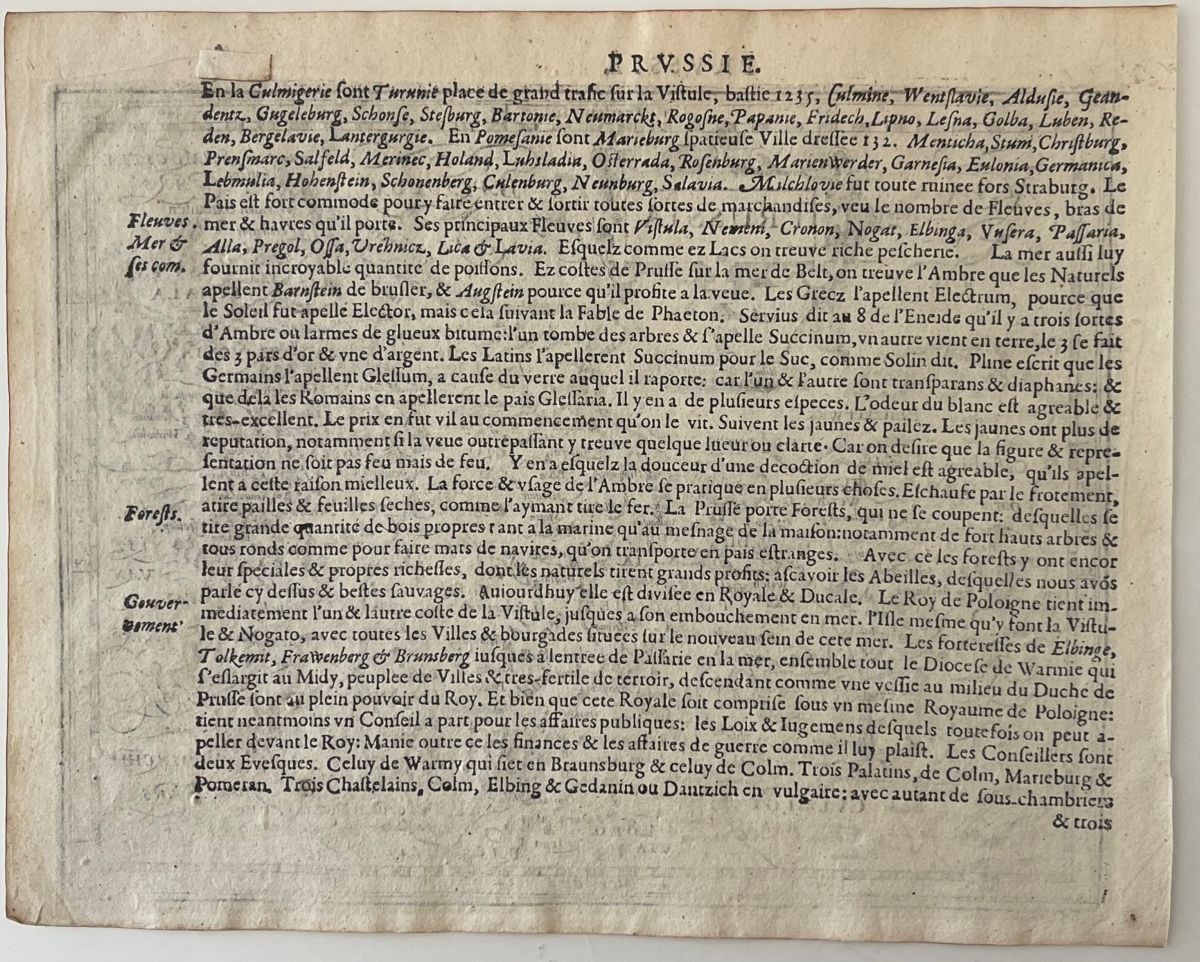 PRVSSIE.
En la Culmigerie ſont Turunie place de grand trafic ſur la Viſtule, baſtie 1235, Culmine, Wentſlavie, Alduſie, Gean-
dentz, Gugeleburg, Schonſe, Steſburg, Bartonie, Neumarckt, Rogoſne, Papanie, Fridech, Lipno, Leſna, Golba, Luben, Re-
den, Bergelavie, Lantergurgie. En Pomeſanie ſont Marieburg ſpatieuſe Ville dreſſee 132. Menticha, Stum, Chriſtburg,
Prenſmarc, Salfeld, Merinec, Holand, Luhſladia, Oſterrada, Roſenburg, MarienWerder, Garneſia, Eulonia, Germanica,
Lebmulia, Hohenſtein, Schonenberg, Culenburg, Neunburg, Salavia. Milchlovie fut toute ruinee fors Straburg. Le
Pais eſt fort commode pour y faire entrer & ſortir toutes ſortes de marchandiſes, veu le nombre de Fleuves, bras de
Fleuves. mer & havres qu'il porte. Ses principaux Fleuves ſont Viſtula, Nemeni, Cronon, Nogat, Elbinga, Vuſera, Paſſaria,
Mer & Alla, Pregol, Oſſa, Vrehnicz, Lica & Lavia. Eſquelz comme ez Lacs on treuve riche peſcherie. La mer auſſi luy
ſes com. fournit incroyable quantité de poiſſons. Ez coſtes de Pruſſe ſur la mer de Belt, on treuve l'Ambre que les Naturels
apellent Barnſtein de bruſler, & Augſtein pource qu'il profite a la veue. Les Grecz l'apellent Electrum, pource que
le Soleil fut apelle Elector, mais cela ſuivant la Fable de Phaeton. Servius dit au 8 de l'Eneide qu'il y a trois ſortes
d'Ambre ou larmes de glueux bitume: l'un tombe des arbres & ſ'apelle Succinum, vn autre vient en terre, le 3 ſe fait
des 3 pars d'or & vne d'argent. Les Latins l'apellerent Succinum pour le Suc, comme Solin dit. Pline eſcrit que les
Germains l'apellent Gleſſum, a cauſe du verre auquel il raporte: car l'un & l'autre ſont tranſparans & diaphanes: &
que delà les Romains en apellerent le pais Gleſſaria. Il y en a de pluſieurs eſpeces. L'odeur du blanc eſt agreable &
tres-excellent. Le prix en fut vil au commencement qu'on le vit. Suivent les jaunes & pailez. Les jaunes ont plus de
reputation, notamment ſi la veue outrepaſſant y treuve quelque lueur ou clarte. Car on deſire que la figure & repre-
ſentation ne ſoit pas feu mais de feu. Y en a eſquelz la douceur d'une decoction de miel eſt agreable, qu'ils apel-
lent a ceſte raiſon mielleux. La force & vſage de l'Ambre ſe pratique en pluſieurs choſes. Eſchaufe par le frotement,
Foreſts. atire pailles & feuilles ſeches, comme l'aymant tire le fer. La Pruſſe porte Foreſts, qui ne ſe coupent: deſquelles ſe
tire grande quantité de bois propres tant a la marine qu'au meſnage de la maiſon: notamment de fort hauts arbres &
tous ronds comme pour faire mats de navires, qu'on tranſporte en pais eſtranges. Avec ce les foreſts y ont encor
leur ſpeciales & propres richeſſes, dont les naturels tirent grands profits: aſcavoir les Abeilles, deſquelles nous avõs
parle cy deſſus & beſtes ſauvages. Auiourdhuy elle eſt diviſee en Royale & Ducale. Le Roy de Poloigne tient im-
Gouver- mediatement l'un & lautre coſte de la Viſtule, juſques a ſon embouchement en mer. l'Iſle meſme qu'y font la Viſtu-
nement le & Nogato, avec toutes les Villes & bourgades ſituees ſur le nouveau ſein de cete mer. Les fortereſſes de Elbinge,
Tolkemit, Frawenberg & Brunsberg iuſques a lentree de Paſſarie en la mer, enſemble tout le Dioceſe de Warmie qui
ſ'eſlargit au Midy, peuplee de Villes & tres-fertile de terroir, deſcendant comme vne veſſie au milieu du Duché de
Pruſſe ſont au plein pouvoir du Roy. Et bien que cete Royale ſoit compriſe ſous vn meſme Royaume de Poloigne:
tient neantmoins vn Conſeil a part pour les affaires publiques: les Loix & Iugemens deſquels toutefois on peut a-
peller devant le Roy: Manie outre ce les finances & les affaires de guerre comme il luy plaiſt. Les Conſeillers ſont
deux Eveſques. Celuy de Warmy qui ſiet en Braunsburg & celuy de Colm. Trois Palatins, de Colm, Marieburg &
Pomeran. Trois Chaſtelains, Colm, Elbing & Gedanin ou Dantzich en vulgaire: avec autant de ſous-chambriers
& trois